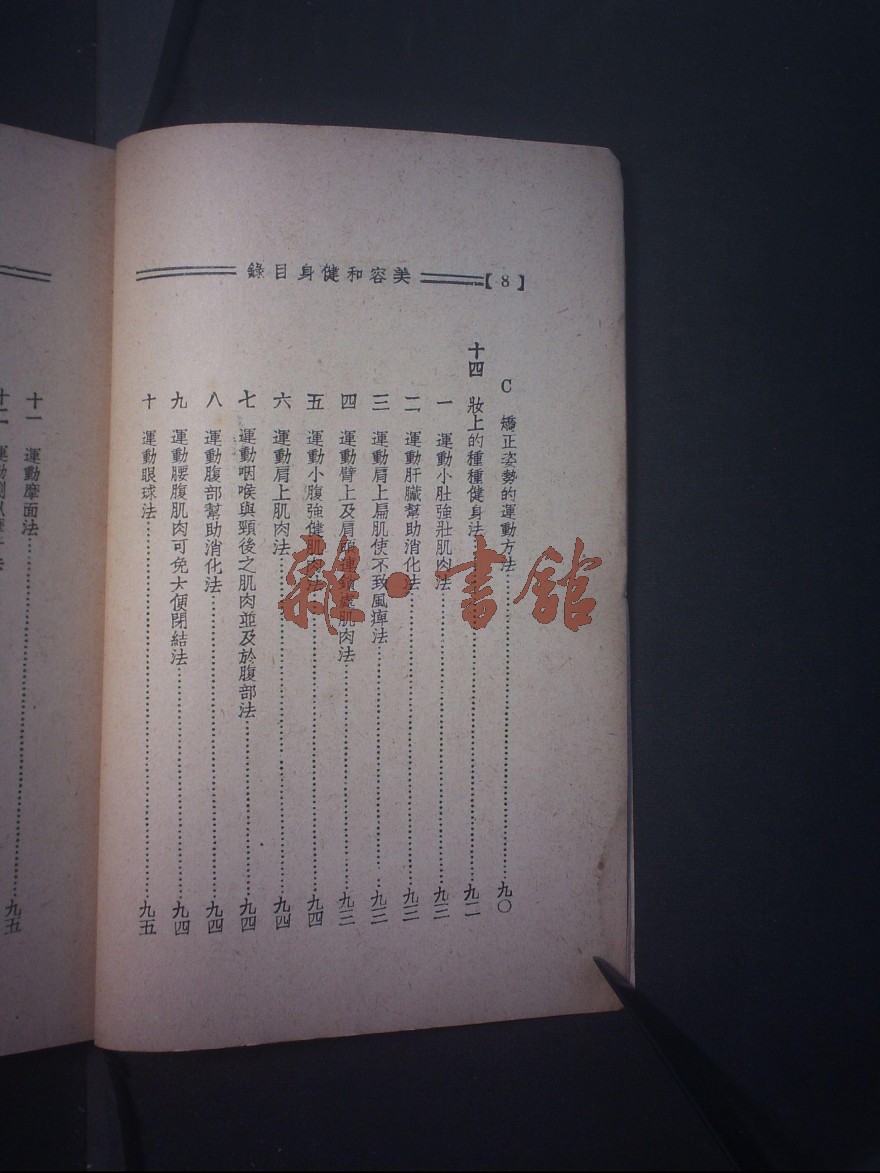 【8】 美容和健身目錄
C 矯正姿勢的運動方法……九〇
十四 妝上的種種健身法……九二
一 運動小肚強壯肌肉法……九三
二 運動肝臟幫助消化法……九三
三 運動肩上扁肌使不致風痺法……九三
四 運動臂上及肩頭連鎖處肌肉法……九三
五 運動小腹強健肌肉法……九四
六 運動肩上肌肉法……九四
七 運動咽喉與頸後之肌肉並及於腹部法……九四
八 運動腹部幫助消化法……九四
九 運動腰腹肌肉可免大便閉結法……九四
十 運動眼球法……九五
十一 運動摩面法……九五
十二 運動
雜·書館